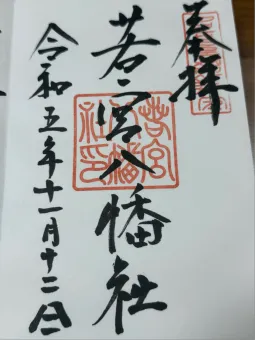 奉拝
若宮八幡社
若宮八幡社印
令和五年十一月十二日